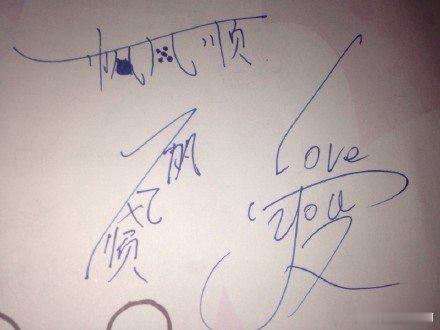 一帆风顺
一帆风顺
Love
You